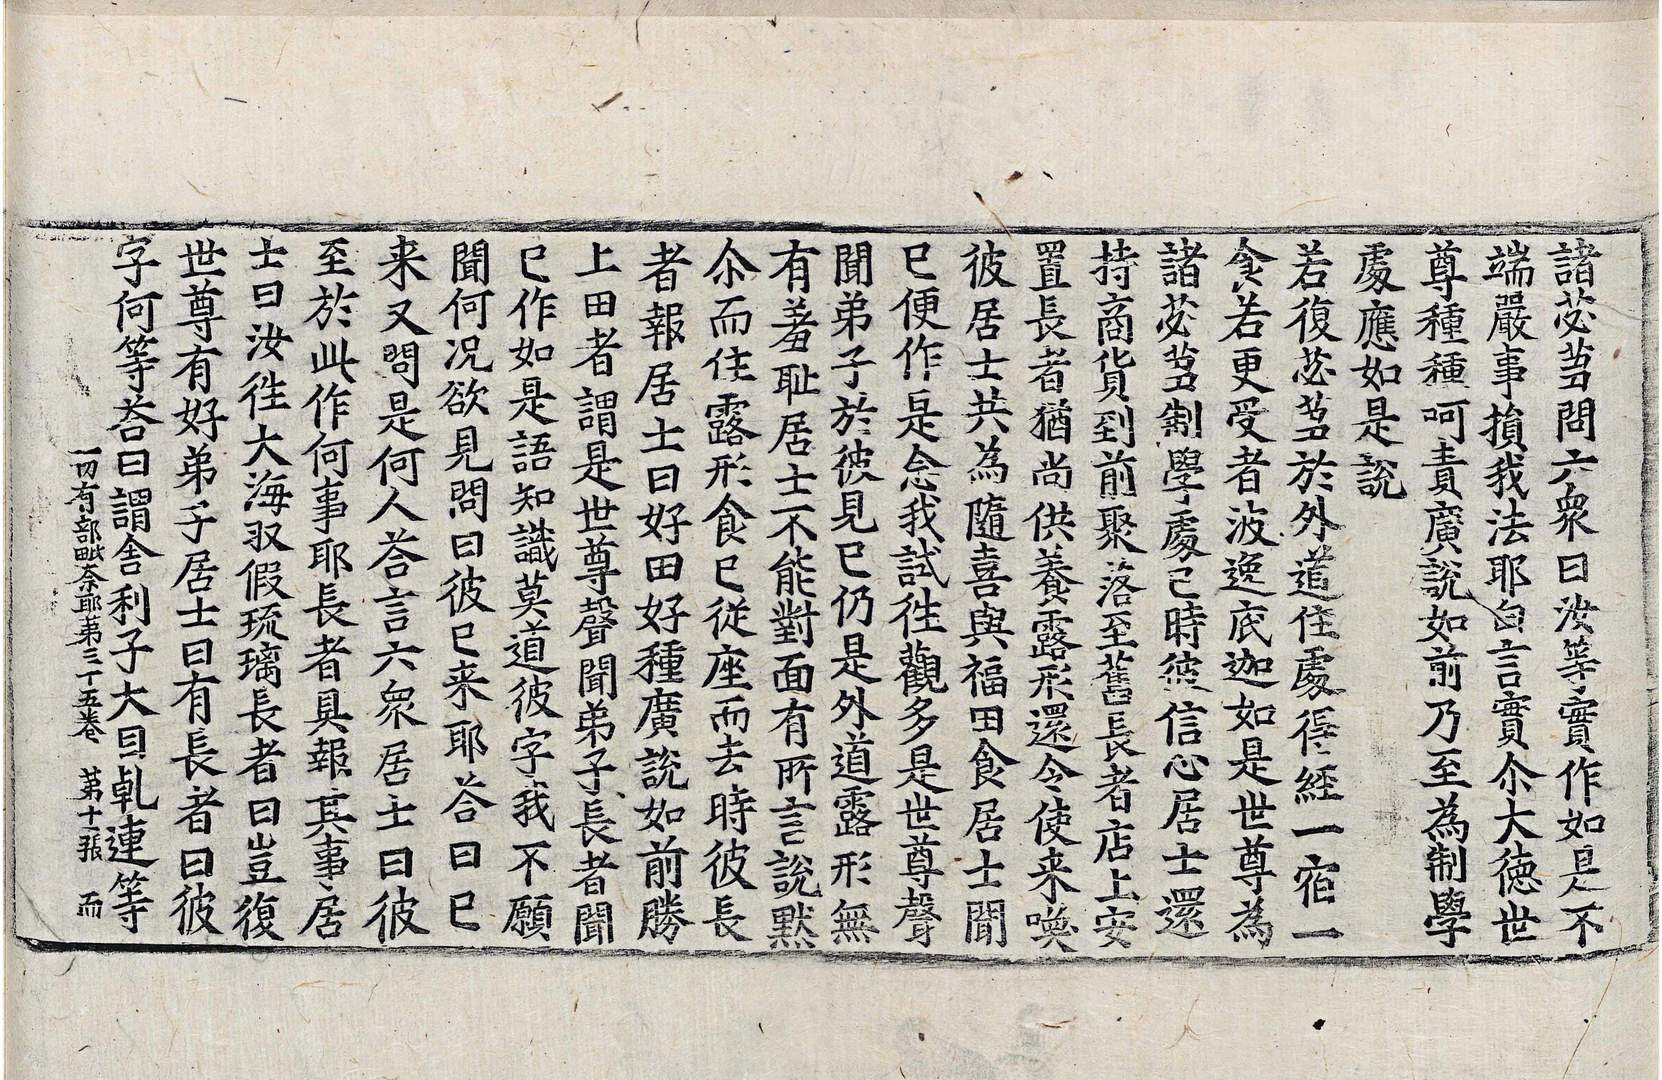 諸苾蒭問六衆曰汝等實作如是不
端嚴事損我法耶白言實尒大德世
尊種種呵責廣說如前乃至為制學
處應如是說
若復苾蒭於外道住處得經一宿一
食若更受者波逸底迦如是世尊為
諸苾蒭制學處已時彼信心居士還
持商貨到前聚落至舊長者店上安
置長者猶尚供養露形還令使来喚
彼居士共為隨喜與福田食居士聞
已便作是念我試徃觀多是世尊聲
聞弟子於彼見已仍是外道露形無
有羞耻居士不能對面有所言說默
尒而住露形食已從座而去時彼長
者報居士曰好田好種廣說如前勝
上田者謂是世尊聲聞弟子長者聞
已作如是語知識莫道彼字我不願
聞何况欲見問曰彼已来耶荅曰已
来又問是何人荅言六衆居士曰彼
至於此作何事耶長者具報其事居
士曰汝徃大海取假琉璃長者曰豈復
世尊有好弟子居士曰有長者曰彼
字何等荅曰謂舎利子大目乹連等
一切有部毗奈耶苐三十五卷 苐十一張 而